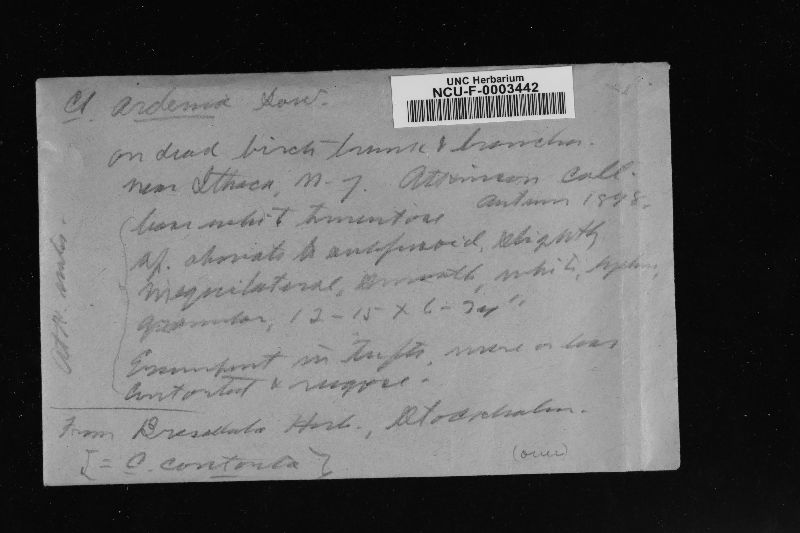 UNC Herbarium
NCU-F-0003442
Cl. ardenia Sow.
on dead birch trunk & branches.
near Ithaca, N.Y. Atkinson Coll.
Autumn 1898.
base white tomentose
sp. obovate to subfusoid, slightly
inequilateral, smooth, white, hyalin,
granular, 12-15 x 6-7µ"
Erumpent in tufts, more or less
contorted & rugose.
Atk. notes.
From Bresadola Herb., Stockholm.
[= C. contorta]
(over)